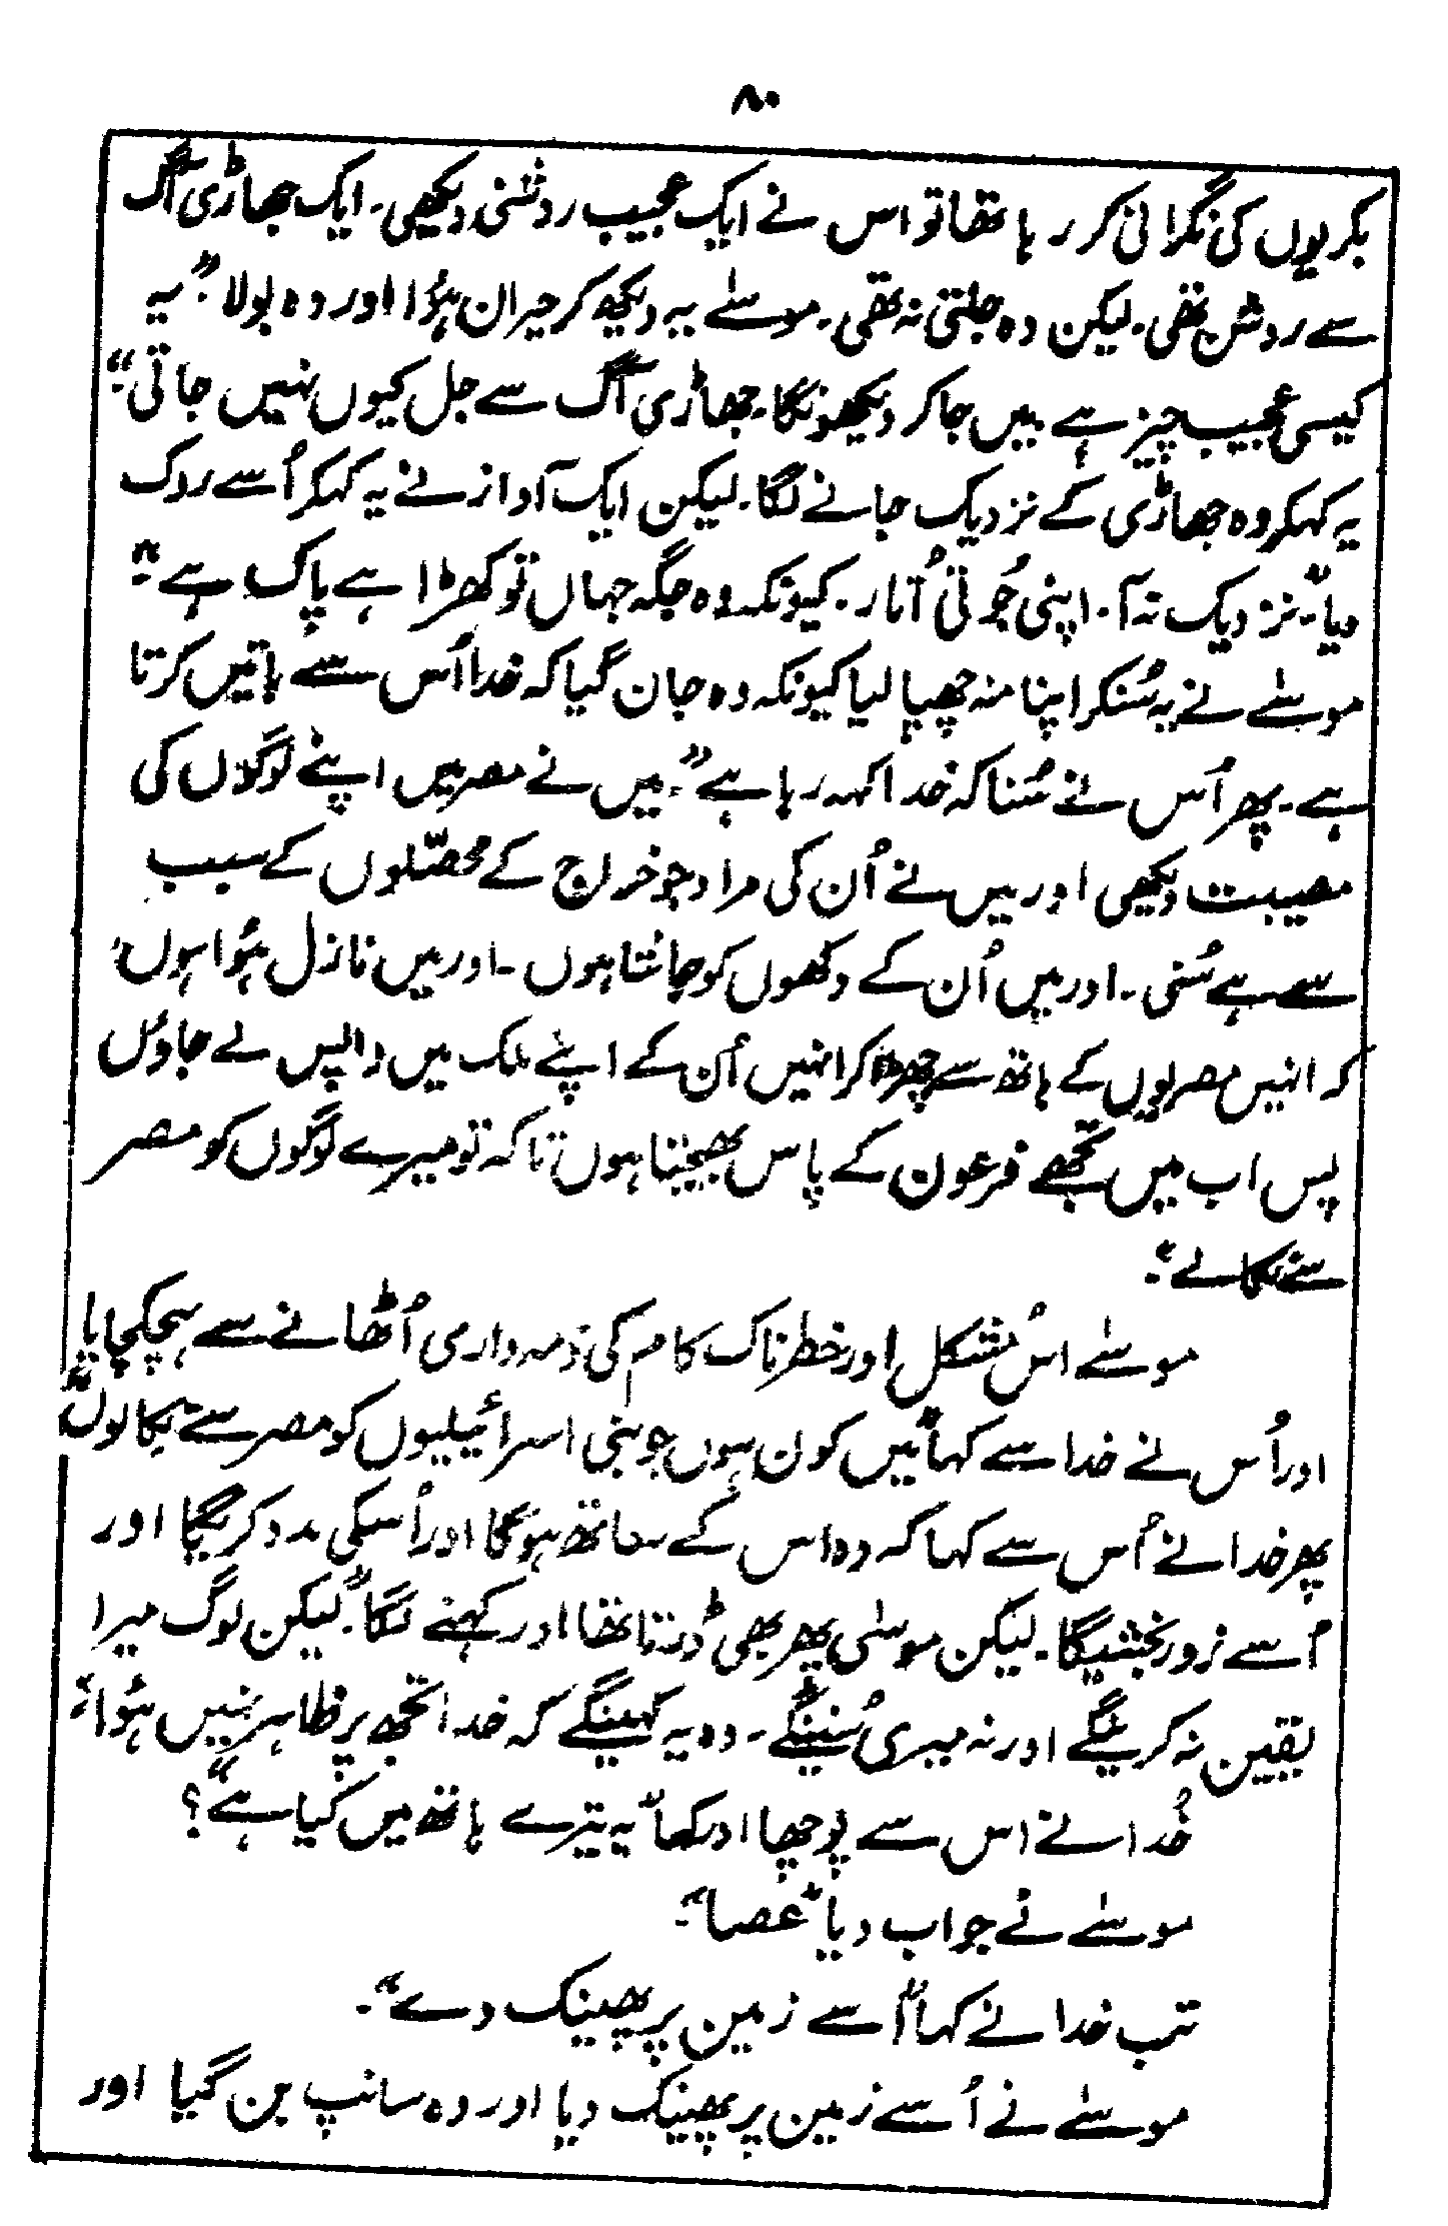 ۸۰
بکریوں کی نگرانی کر رہا تھا تو اس نے ایک عجیب روشنی دیکھی۔ ایک جھاڑی آگ
سے روشن تھی۔ لیکن وہ جلتی نہ تھی۔ موسٰے یہ دیکھ کر حیران ہؤا اور وہ بولا۔ "یہ
کیسی عجیب چیز ہے میں جا کر دیکھونگا۔ جھاڑی آگ سے جل کیوں نہیں جاتی"۔
یہ کہکر وہ جھاڑی کے نزدیک جانے لگا۔ لیکن ایک آواز نے یہ کہکر اُسے روک
دیا۔ "نزدیک نہ آ۔ اپنی جُوتی اُتار۔ کیونکہ وہ جگہ جہاں تو کھڑا ہے پاک ہے"۔
موسٰے نے یہ سُنکر اپنا منہ چھپا لیا کیونکہ وہ جان گیا کہ خدا اُس سے باتیں کرتا
ہے۔ پھر اُس نے سُنا کہ خدا کہہ رہا ہے"۔ میں نے مصر میں اپنے لوگوں کی
مصیبت دیکھی اور میں نے اُن کی مراد جو خراج کے محصّلوں کے سبب
سے ہے سُنی۔ اور میں اُن کے دکھوں کو جانتا ہوں۔ اور میں نازل ہؤا ہوں
کہ انہیں مصریوں کے ہاتھ سے چھڑا کر انہیں اُن کے اپنے ملک میں واپس لے جاؤں
پس اب میں تجھے فرعون کے پاس بھیجتا ہوں تا کہ تو میرے لوگوں کو مصر
سے نکالے"۔
موسٰے اس مُشکل اور خطرناک کام کی ذمہ داری اُٹھانے سے ہچکچایا
اور اُس نے خدا سے کہا "میں کون ہوں جو بنی اسرائیلیوں کو مصر سے نکالوں"
پھر خدا نے اُس سے کہا کہ وہ اس کے ساتھ ہوگا اور اُسکی مدد کریگا اور
اُسے زور بخشیگا۔ لیکن موسٰی پھر بھی ڈرتا تھا اور کہنے لگا۔ "لیکن لوگ میرا
یقین نہ کرینگے اور نہ میری سُنینگے۔ وہ یہ کہینگے کہ خدا تجھ پر ظاہر نہیں ہؤا"۔
خُدا نے اس سے پوچھا اور کہا "یہ تیرے ہاتھ میں کیا ہے"؟
موسٰے نے جواب دیا "عصا"۔
تب خدا نے کہا "اُسے زمین پر پھینک دے"۔
موسٰے نے اُسے زمین پر پھینک دیا اور وہ سانپ بن گیا اور